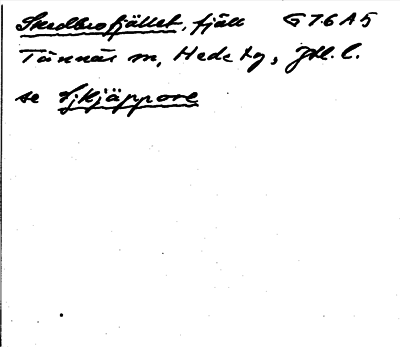 Skedbrofjället, fjäll G76A5
Tännäs sn, Hede tg, Jtl. l.
se Sjkjäppore